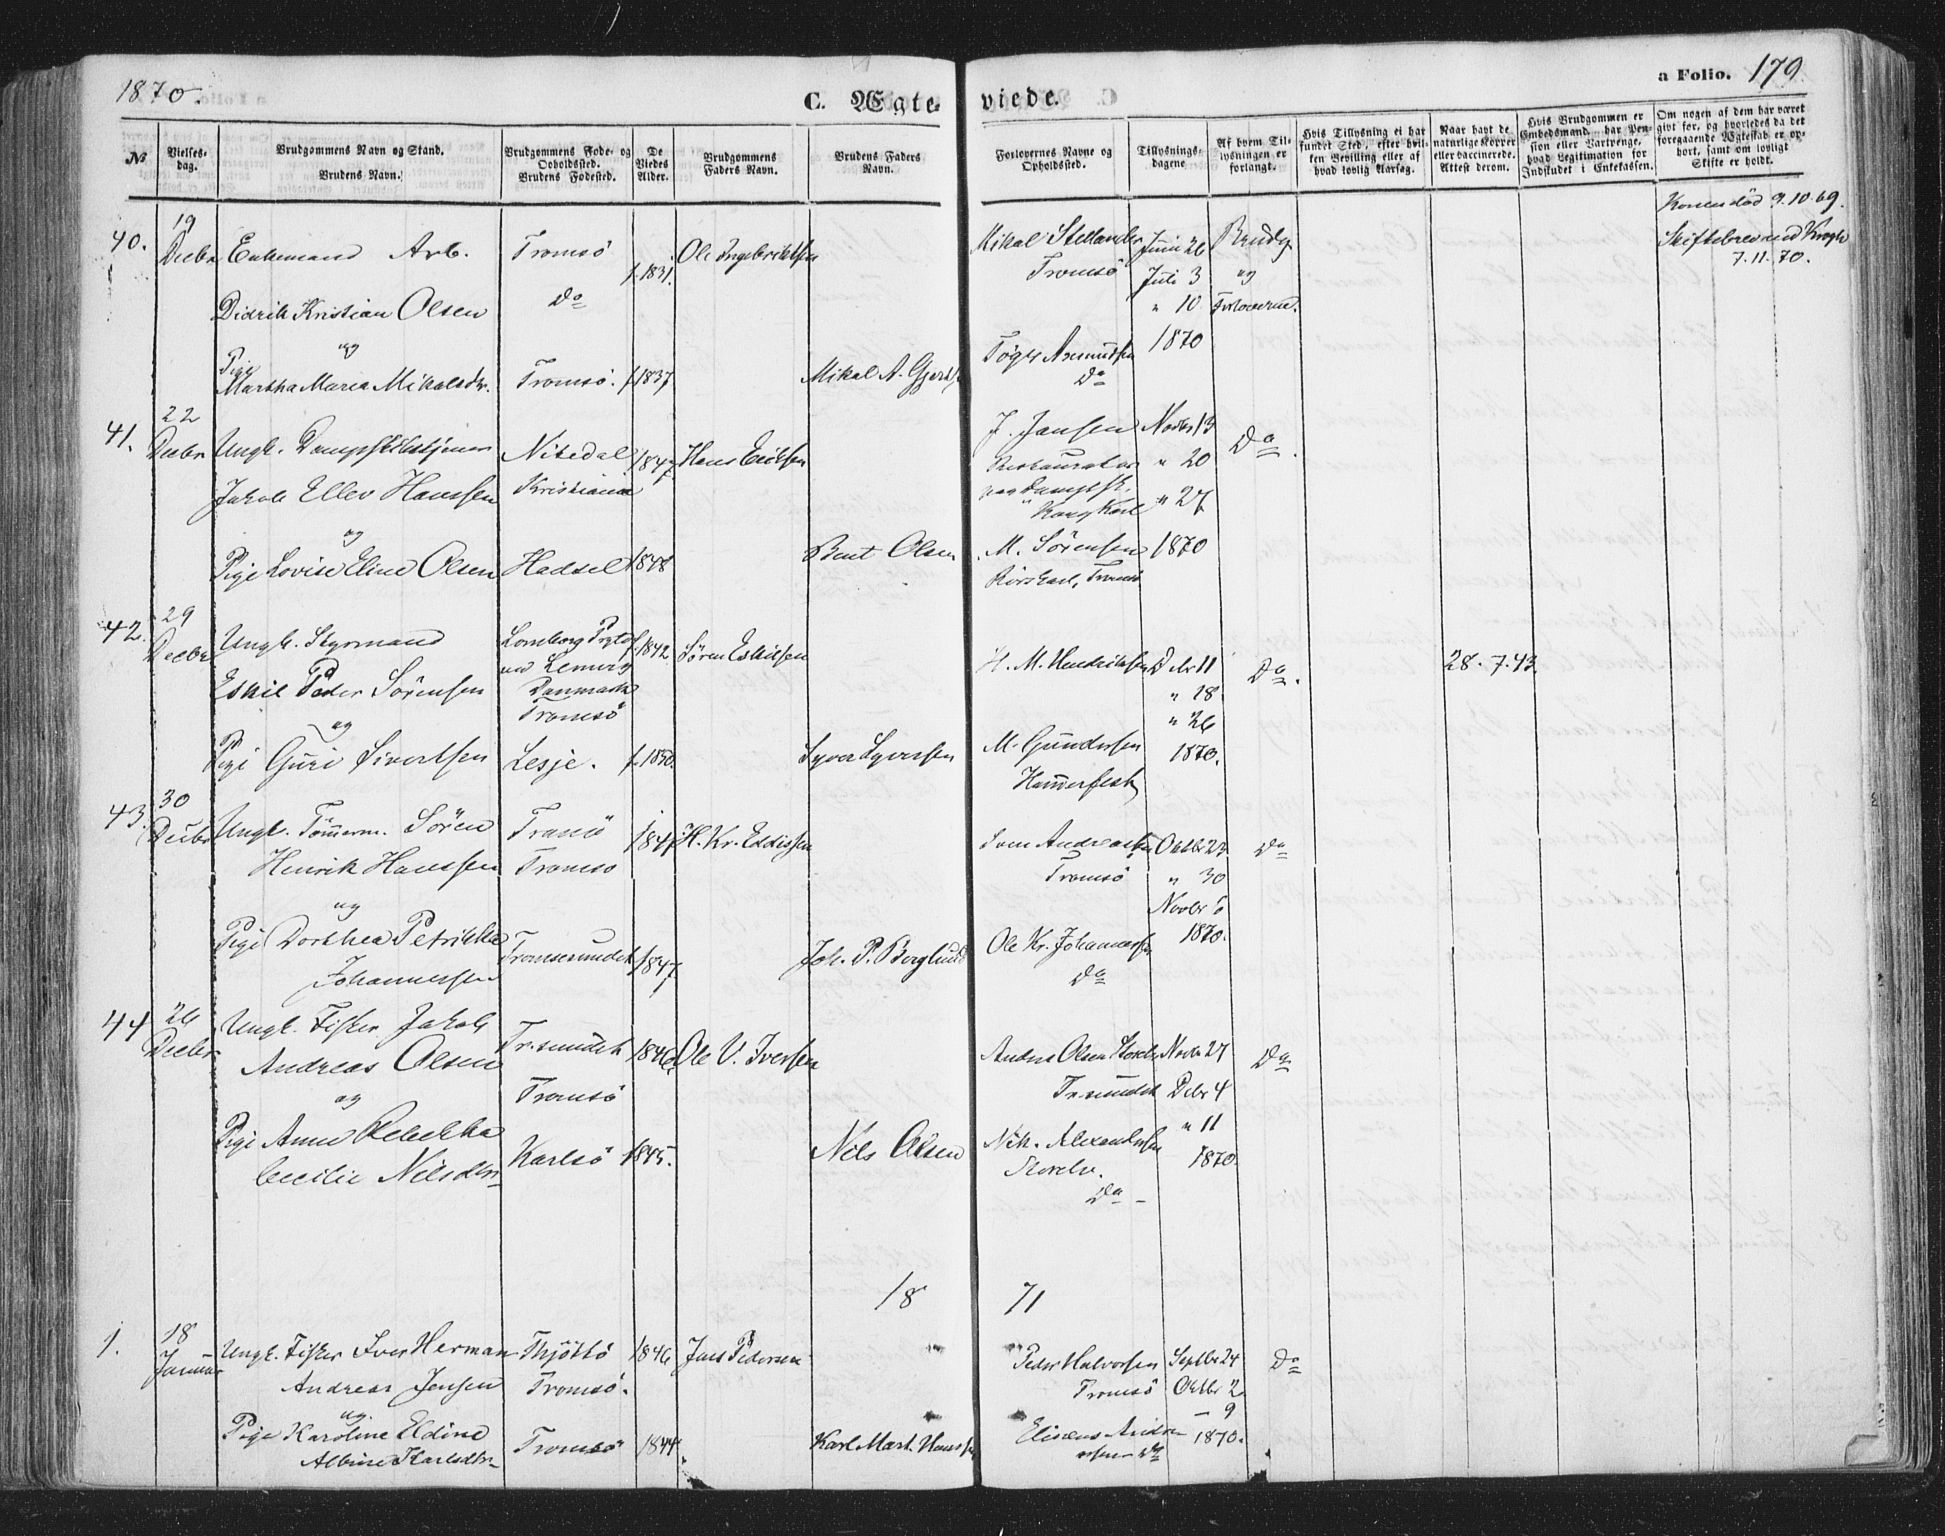 1870.
C. Ægteviede.
a Folio. 179.
No
Vielses-dag.
Brudgommens Navn og Stand.
Brudens Navn.
Brudgommens Føde- og Opholdssted.
Brudens Fødested.
De Viedes Alder.
Brudgommens Faders Navn.
Brudens Faders Navn.
Forlovernes Navne og Opholdssted.
Tillysnings-dagene
Af hvem Tillysningen er forlangt.
Hvis Tillysning ei har fundet Sted, efter hvilken Bevilling eller af hvad lovlig Aarsag.
Naar havt de naturlige Kopper eller vaccinerede. Attest derom.
Hvis Brudgommen er Embedsmand, har Pension eller Vartpenge, hvad Legitimation for Indskudet i Enkekassen.
Om nogen af dem har været gift før, og hvorledes da det foregaaende Ægteskab er ophørt, samt om lovligt Skifte er holdt.
40.
19
Decbr
Enkemand Arb.
Didrik Kristian Olsen
og
Pige
Martha Maria Mikalsdtr.
Tromsö
Do
Tromsö.
f. 1831.
f. 1837
Ole Ingebriktsen
Mikal A. Gjerts
Mikal Stellander
Tromsö
Töger Asmundsen
Do
Juni 26
Juli 3
" 10
1870
Brudg.
og
Forloverne.
Konen död 9.10.69.
Skiftebrev med Krogh
7.11.70.
41.
22
Decbr
Ungk. Dampskibstjener
Jakob Ellev Hanssen
og
Pige Lovise Eline Olsen
Nitedal
Kristiania
Hadsel
1847
1848
Hans Eriksen
Bent Olsen
J. Jansen
Restauratør
paa Dampsk.
Kong Karl
M. Sörensen
Rorskarl, Tromsö
Novbr 13
" 20
" 27
1870
Do.
42.
29
Decbr
Ungk. Styrmand
Eskil Peder Sörensen
og
Pige Guri Sivertsen
Lomborg
ved Lemvig
Danmark
Tromsö
Lesje.
f. 1842
f. 1850.
Sören Eskilsen
Syver Syversen
H. M. Hendriksen
M. Gundersen
Hammerfest
Debr 11
" 18.
" 26
1870.
Do.
28.7.43.
43.
30
Decbr
Ungk. Tömerm. Sören
Henrik Hanssen
og
Pige Dorthea Petrikka
Johannessen
Tranö
Tromsö
Tromsösundet
1847
1847.
H. Kr. Eddissen
Joh. P. Berglund
Sven Andreassen
Tromsö
Ole Kr. Johannessen
Do
Oktbr 23
" 30
Novbr 6
1870.
Do
44
26
Decbr
Ungk. Fisker Jakob
Andreas Olsen
og
Pige Anne Rebekka
Cecilie Nilsdtr
Tr.sundet
Tromsö
Karlsö
1846
1845.
Ole V. Iversen
Nils Olsen
Anders Olsen Storelv
Tr.sundet
Nik. Alexandersen
Storelv.
Do
Novbr 27
Debr 4
" 11
1870.
Do
18 71
1.
18
Januar
Ungk. Fisker Iver Herman
Andreas Jensen
og
Pige Karoline Eldine
Albine Karlsdtr
Thjöttö
Tromsö.
Tromsö
1846
1844.
Jens Pedersen
Karl Mart. Hanssen
Peder Halvorsen
Tromsö
Eliseus Andreassen Do
Septbr 24
Oktbr 2
— 9
1870.
Do